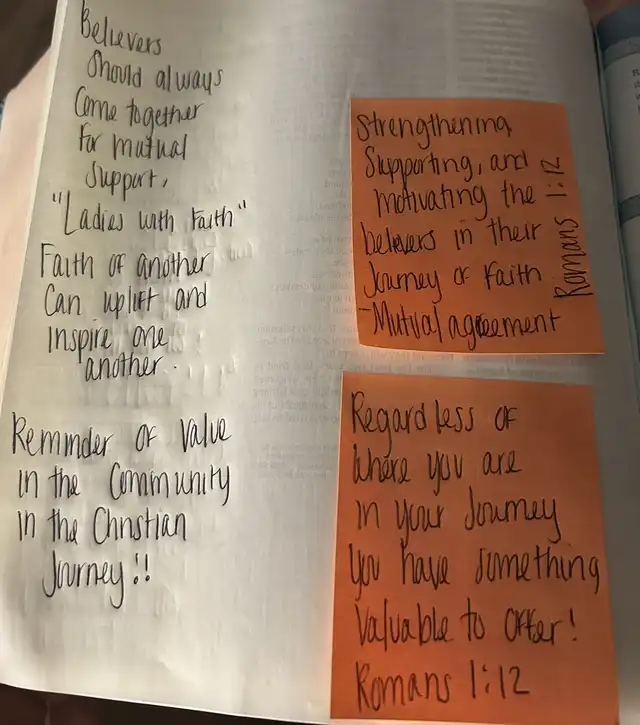 Believers
Should always
Come together
For mutual
Support.
"Ladies with Faith"
Faith of another
Can uplift and
inspire one
another.
Reminder of Value
in the Community
in the Christian
Journey!!
Strengthening,
Supporting, and
motivating the
believers in their
Journey of Faith
-Mutual agreement
Romans 1:12
Regardless of
Where you are
in your Journey
You have something
Valuable to offer!
Romans 1:12